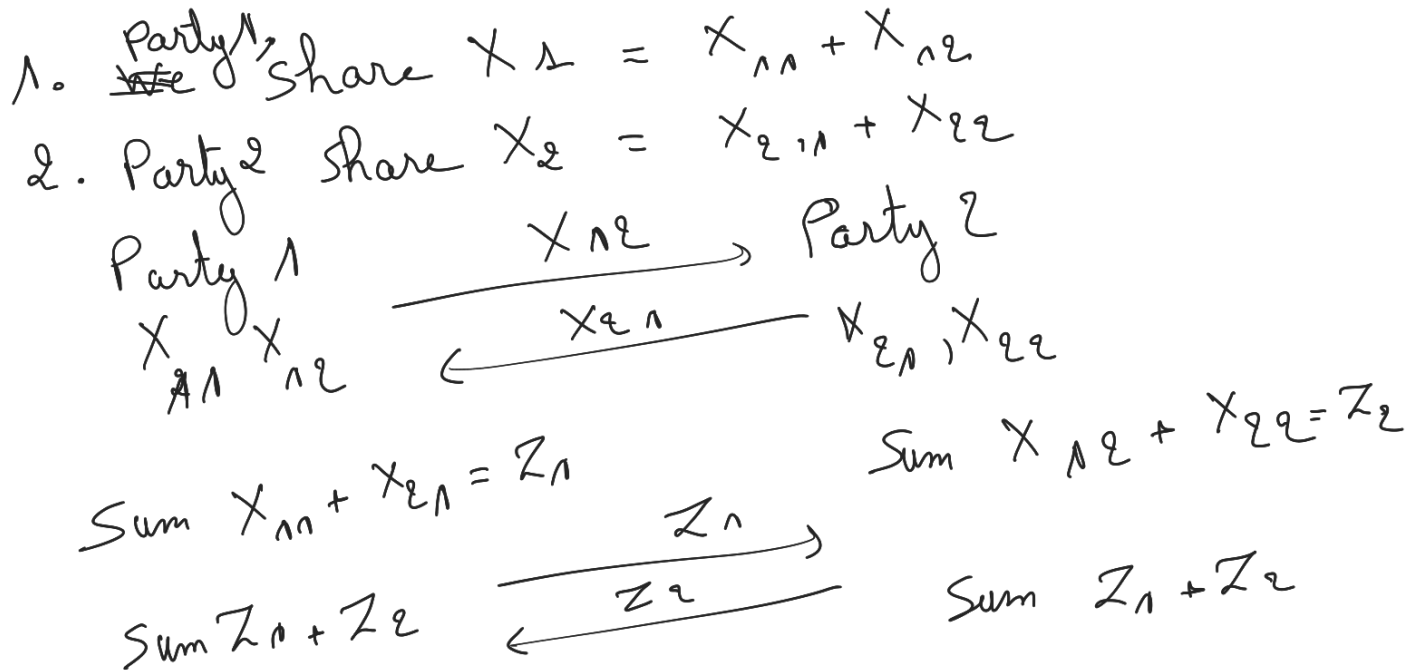 1. We Party 1, share X1 = X11 + X12
2. Party 2 share X2 = X2,1 + X22
Party 1 X12 Party 2
X11 X12 X21 X21, X22
Sum X11 + X21 = Z1 Sum X12 + X22 = Z2
Z1
Sum Z1 + Z2 Z2 Sum Z1 + Z2